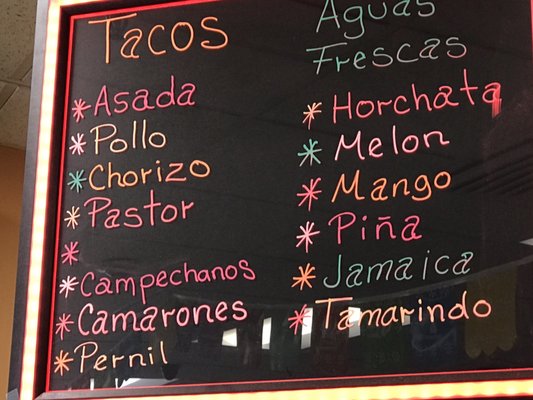 Tacos
* Asada
* Pollo
* Chorizo
* Pastor
*
* Campechanos
* Camarones
* Pernil
Aguas
Frescas
* Horchata
* Melon
* Mango
* Piña
* Jamaica
* Tamarindo